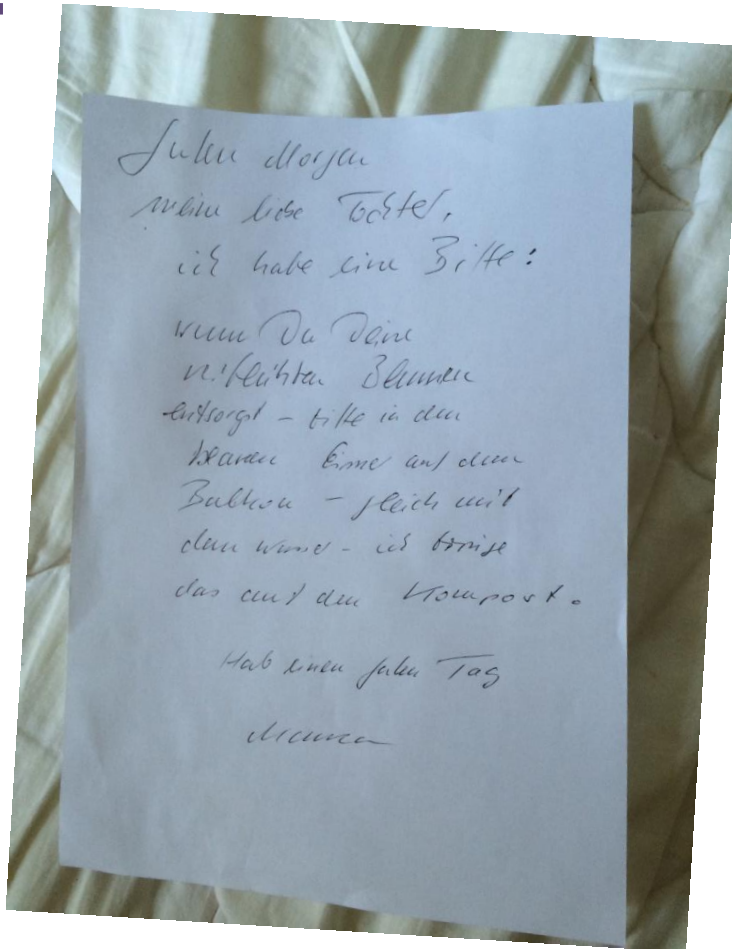 Guten Morgen
meine liebe Tochter,
ich habe eine Bitte:
wenn Du Deine
verblühten Blumen
entsorgst – bitte in den
blauen Eimer auf dem
Balkon – gleich mit
dem Wasser – ich bringe
das auf den Kompost.
Hab einen guten Tag
Mama